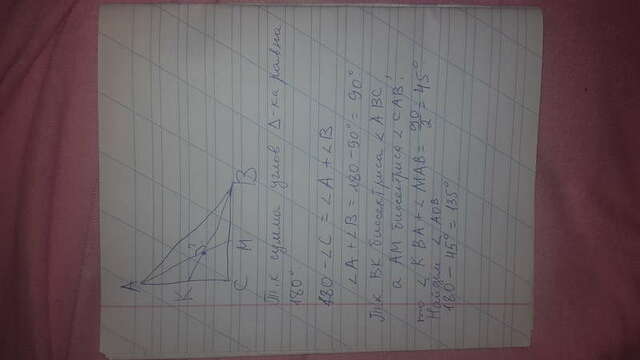 A
K
C
M
B
О
?
Т.к сумма углов ∆-ка равна
180°
180°-∠C = ∠A + ∠B
∠A+∠B = 180-90° = 90°
Т.к BK биссектриса ∠ABC
а AM биссектриса ∠CAB,
то ∠KBA+∠MAB = 90/2 = 45°
Найдём ∠AOB
180° - 45° = 135°